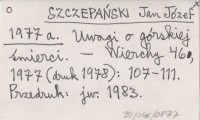 SZCZEPAŃSKI Jan Józef
1977 a. Uwagi o górskiej
śmierci. — Wierchy 46,
1977 (druk 1978): 107-111.
Przedruk: jw. 1983.